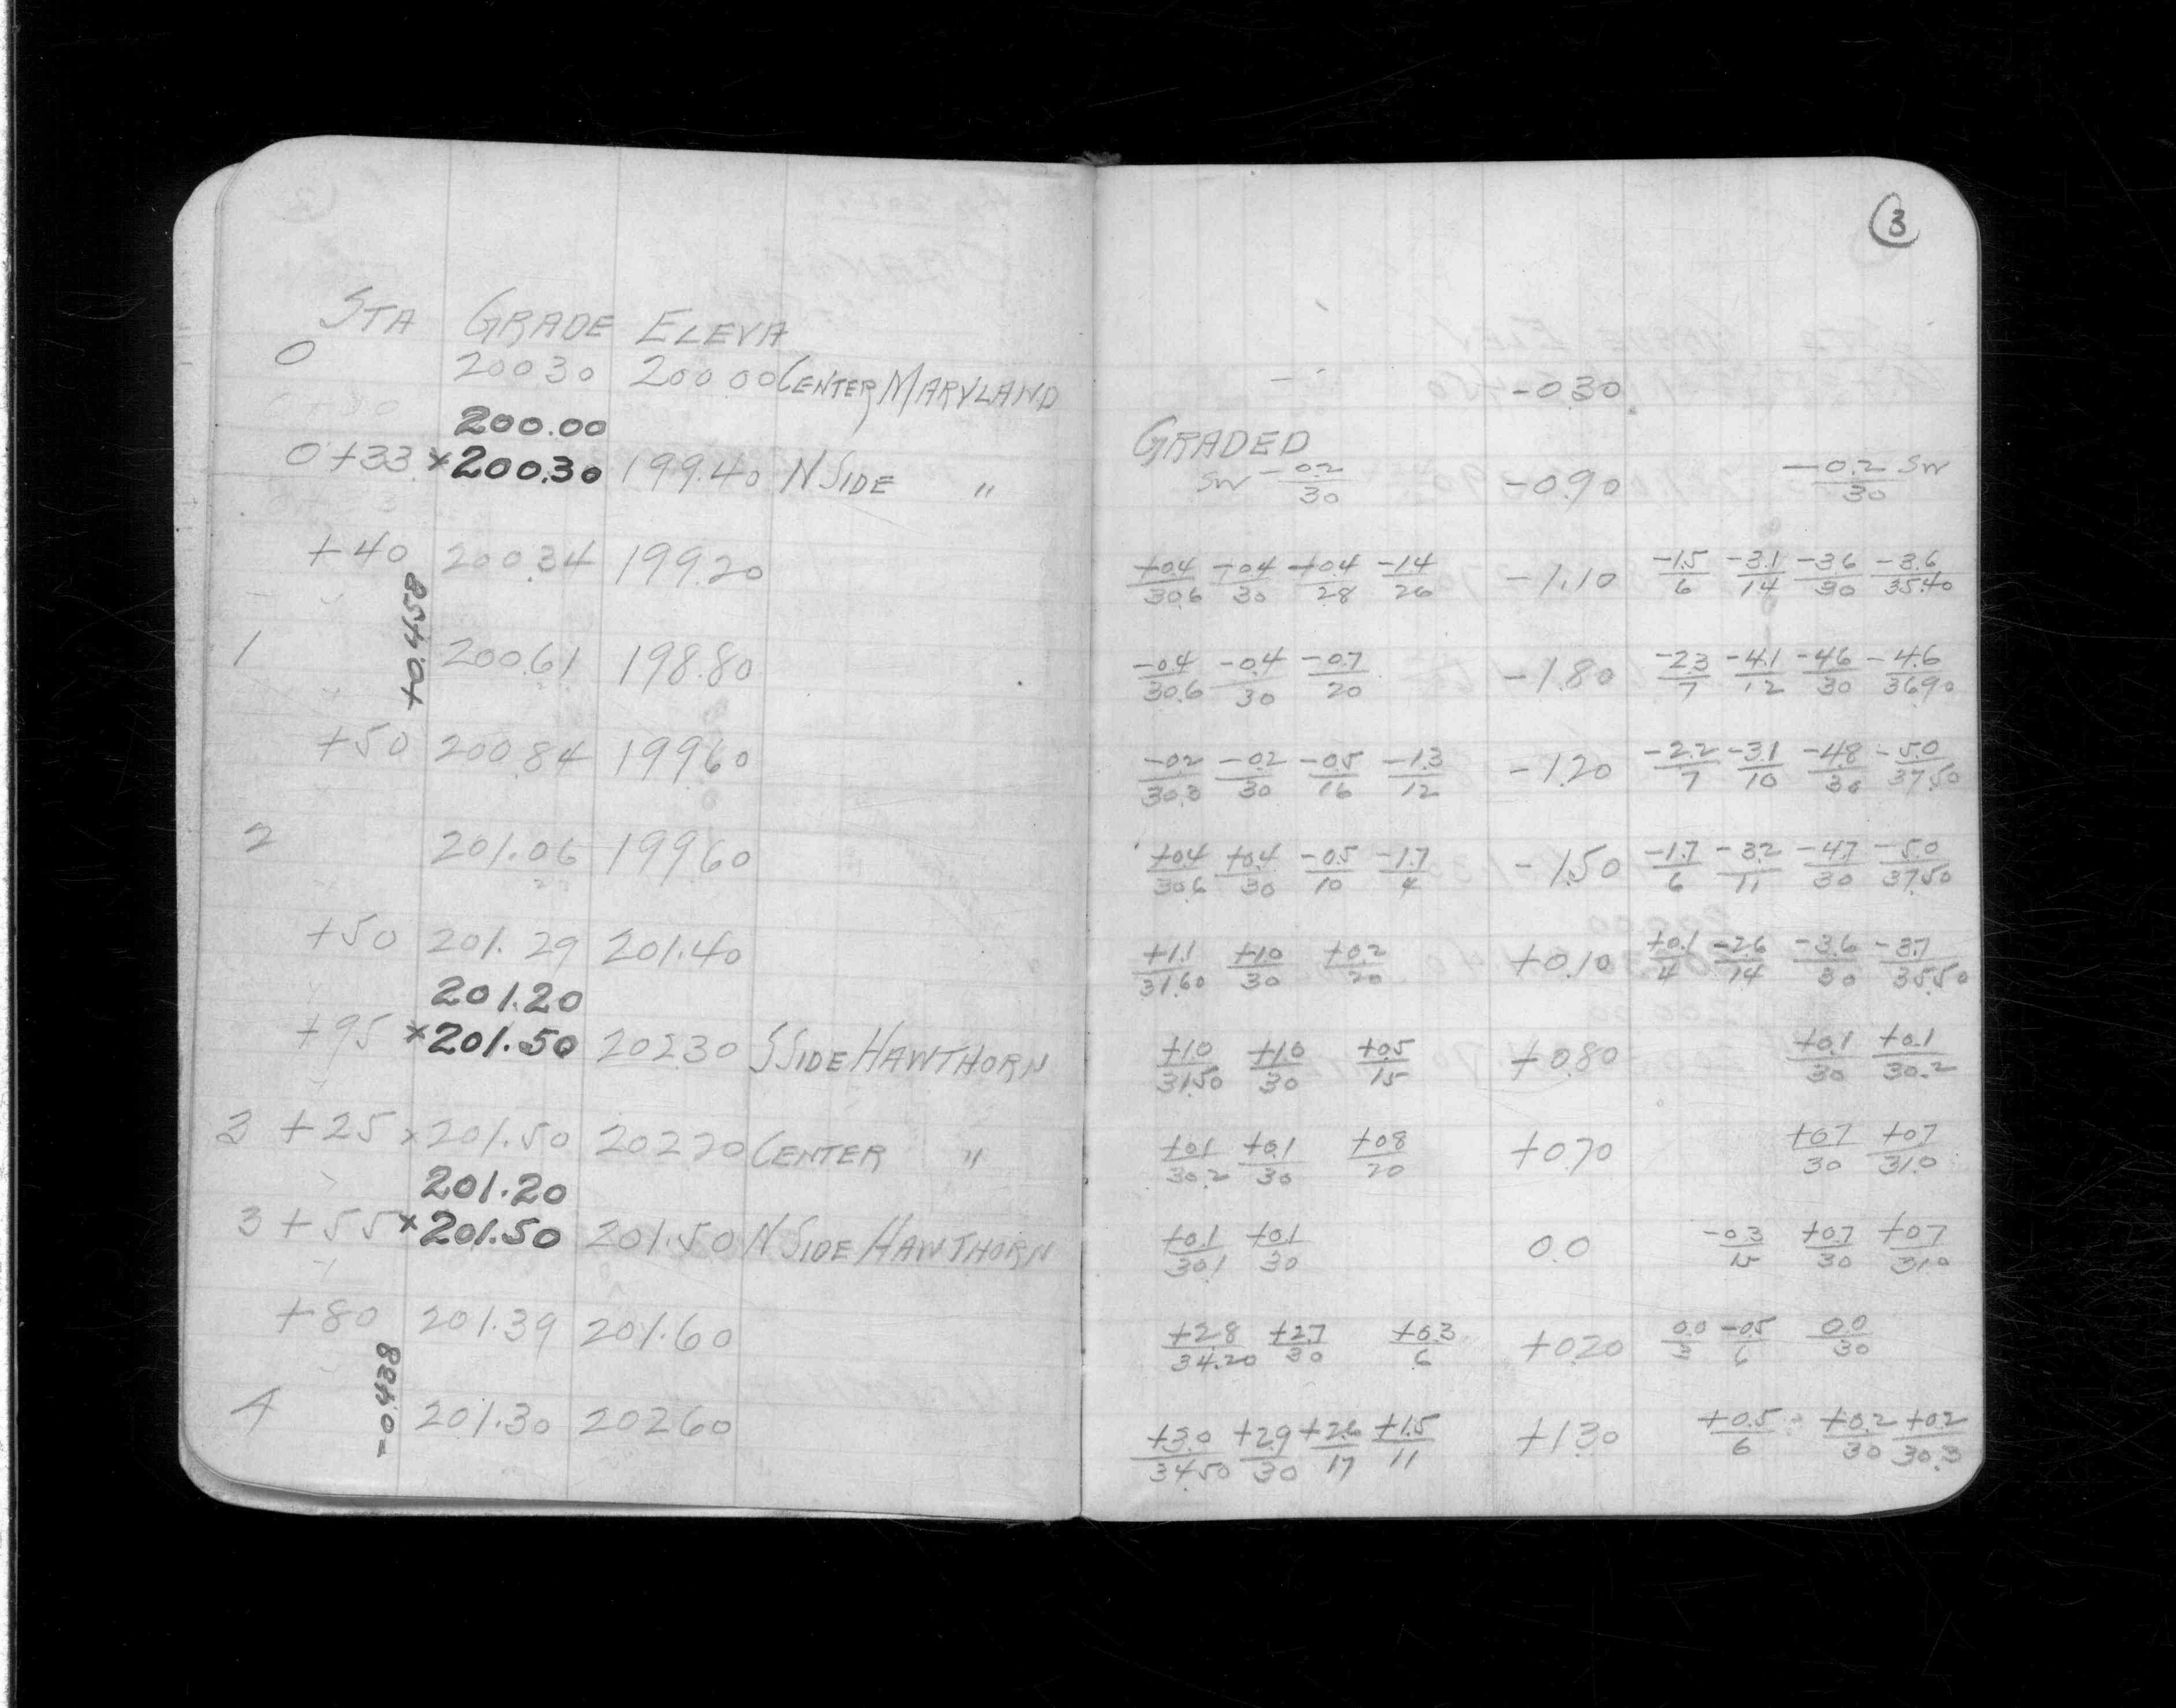 3
STA GRADE ELEVA
0 200 30 200 00 CENTER MARYLAND - 0 30
200.00
GRADED
0+33 ×200.30 199.40 N SIDE " SW -0.2/30 -0.90 -0.2/30 SW
+40 200.34 199.20 +0.4/30.6 +0.4/30 +0.4/28 -1.4/26 -1.10 -1.5/6 -3.1/14 -3.6/30 -3.6/35.40
+0.458
1 200.61 198.80 -0.4/30.6 -0.4/30 -0.7/20 -1.80 -2.3/7 -4.1/12 -4.6/30 -4.6/36.90
+50 200.84 199.60 -0.2/30.3 -0.2/30 -0.5/16 -1.3/12 -1.20 -2.2/7 -3.1/10 -4.8/30 -5.0/37.50
2 201.06 199.60 +0.4/30.6 +0.4/30 -0.5/10 -1.7/4 -1.50 -1.7/6 -3.2/11 -4.7/30 -5.0/37.50
+50 201.29 201.40 +1.1/31.60 +1.0/30 +0.2/20 +0.10 +0.1/4 -2.6/14 -3.6/30 -3.7/35.50
201.20
+95 ×201.50 202.30 S SIDE HAWTHORN +1.0/31.50 +1.0/30 +0.5/15 +0.80 +0.1/30 +0.1/30.2
3 +25 ×201.50 202 20 CENTER " +0.1/30.2 +0.1/30 +0.8/20 +0.70 +0.7/30 +0.7/31.0
201.20
3 +55 ×201.50 201.50 N SIDE HAWTHORN +0.1/30.1 +0.1/30 0.0 -0.3/15 +0.7/30 +0.7/31.0
+80 201.39 201.60 +2.8/34.20 +2.7/30 +0.3/6 +0.20 0.0/3 -0.5/6 0.0/30
-0.438
4 201.30 202 60 +3.0/34.50 +2.9/30 +2.6/17 +1.5/11 +1.30 +0.5/6 +0.2/30 +0.2/30.3